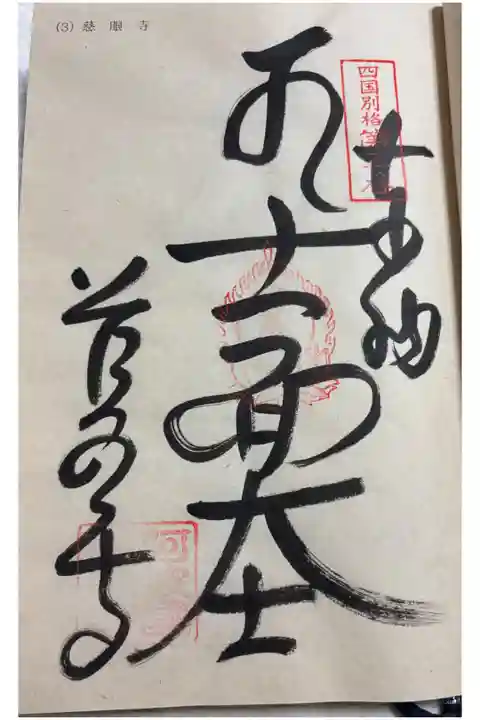 (3) 慈眼寺
四国別格第
奉納
十一面大士
慈眼寺